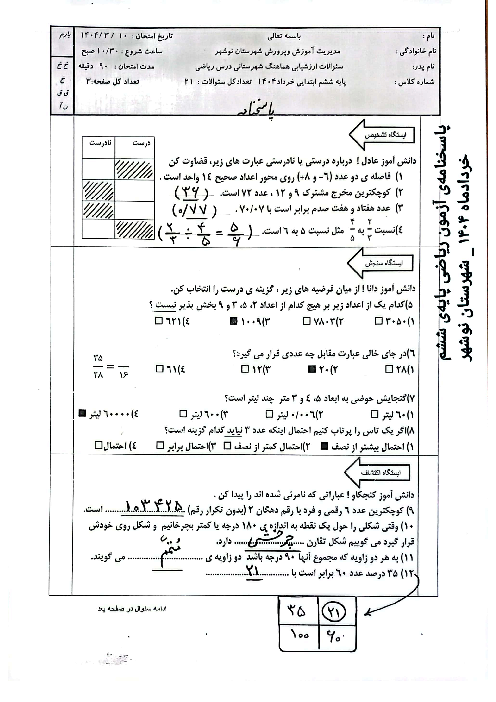 باسمه تعالی
نام :
نام خانوادگی :
نام پدر:
شماره کلاس :
مدیریت آموزش وپرورش شهرستان نوشهر
سئوالات ارزشیابی هماهنگ شهرستانی درس ریاضی
پایه ششم ابتدایی خرداد۱۴۰۴ تعدادکل سئوالات : ۲۱
تاریخ امتحان: ۱۰ / ۳ / ۱۴۰۴
ساعت شروع : ۱۰/۳۰ صبح
مدت امتحان: ۹۰ دقیقه
تعدادکل صفحه:۳
بارم
پاسخنامه
پاسخنامه‌ی آزمون ریاضی پایه‌ی ششم
خردادماه ۱۴۰۴ _ شهرستان نوشهر
ایستگاه تشخیص
درست نادرست
دانش آموز عادل ! درباره درستی یا نادرستی عبارت های زیر، قضاوت کن
۱) فاصله ی دو عدد (۶-) و (۸-) روی محور اعداد صحیح ۱۴ واحد است .
۲) کوچکترین مخرج مشترک ۹ و ۱۲ ، عدد ۷۲ است. (۳۶)
۳) عدد هفتاد و هفت صدم برابر است با ۷۰/۰۷. (۰/۷۷)
۴)نسبت ۲/۳ به ۴/۵ مثل نسبت ۵ به ۶ است. (۲/۳ ÷ ۴/۵ = ۵/۶)
ایستگاه سنجش
دانش آموز دانا ! از میان فرضیه های زیر ، گزینه ی درست را انتخاب کن.
۵)کدام یک از اعداد زیر بر هیچ کدام از اعداد ۲، ۵، ۳ و ۹ بخش پذیر نیست ؟
۱)۳۰۵۰ ۲)۷۸۰۳ ۳)۱۰۰۹ ۴)۶۲۱
۶)در جای خالی عبارت مقابل چه عددی قرار می گیرد؟ ۳۵/۲۸ = /۱۶
۱)۲۸ ۲)۲۰ ۳)۱۲ ۴)۶۱
۷)گنجایش حوضی به ابعاد ۵، ۴ و ۳ متر چند لیتر است؟
۱)۶۰ لیتر ۲)۰/۰۰۶ لیتر ۳)۶۰۰ لیتر ۴)۶۰۰۰۰ لیتر
۸)اگر یک تاس را پرتاب کنیم احتمال اینکه عدد ۳ نیاید کدام گزینه است؟
۱) احتمال بیشتر از نصف ۲)احتمال کمتر از نصف ۳)احتمال برابر ۴) احتمال
ایستگاه اکتشاف
دانش آموز کنجکاو ! عباراتی که نامرئی شده اند را پیدا کن .
۹) کوچکترین عدد ۶ رقمی و فرد با رقم دهگان ۲ (بدون تکرار رقم) ۱۰۳۴۲۵ است.
۱۰) وقتی شکلی را حول یک نقطه به اندازه ی ۱۸۰ درجه یا کمتر بچرخانیم و شکل روی خودش
قرار گیرد می گوییم شکل تقارن چرخشی دارد.
۱۱) به هر دو زاویه که مجموع آنها ۹۰ درجه باشد دو زاویه ی متمم می گویند.
۱۲) ۳۵ درصد عدد ۶۰ برابر است با ۲۱
۳۵ ۲۱
۱۰۰ ۶۰
ادامه سئوال در صفحه بعد